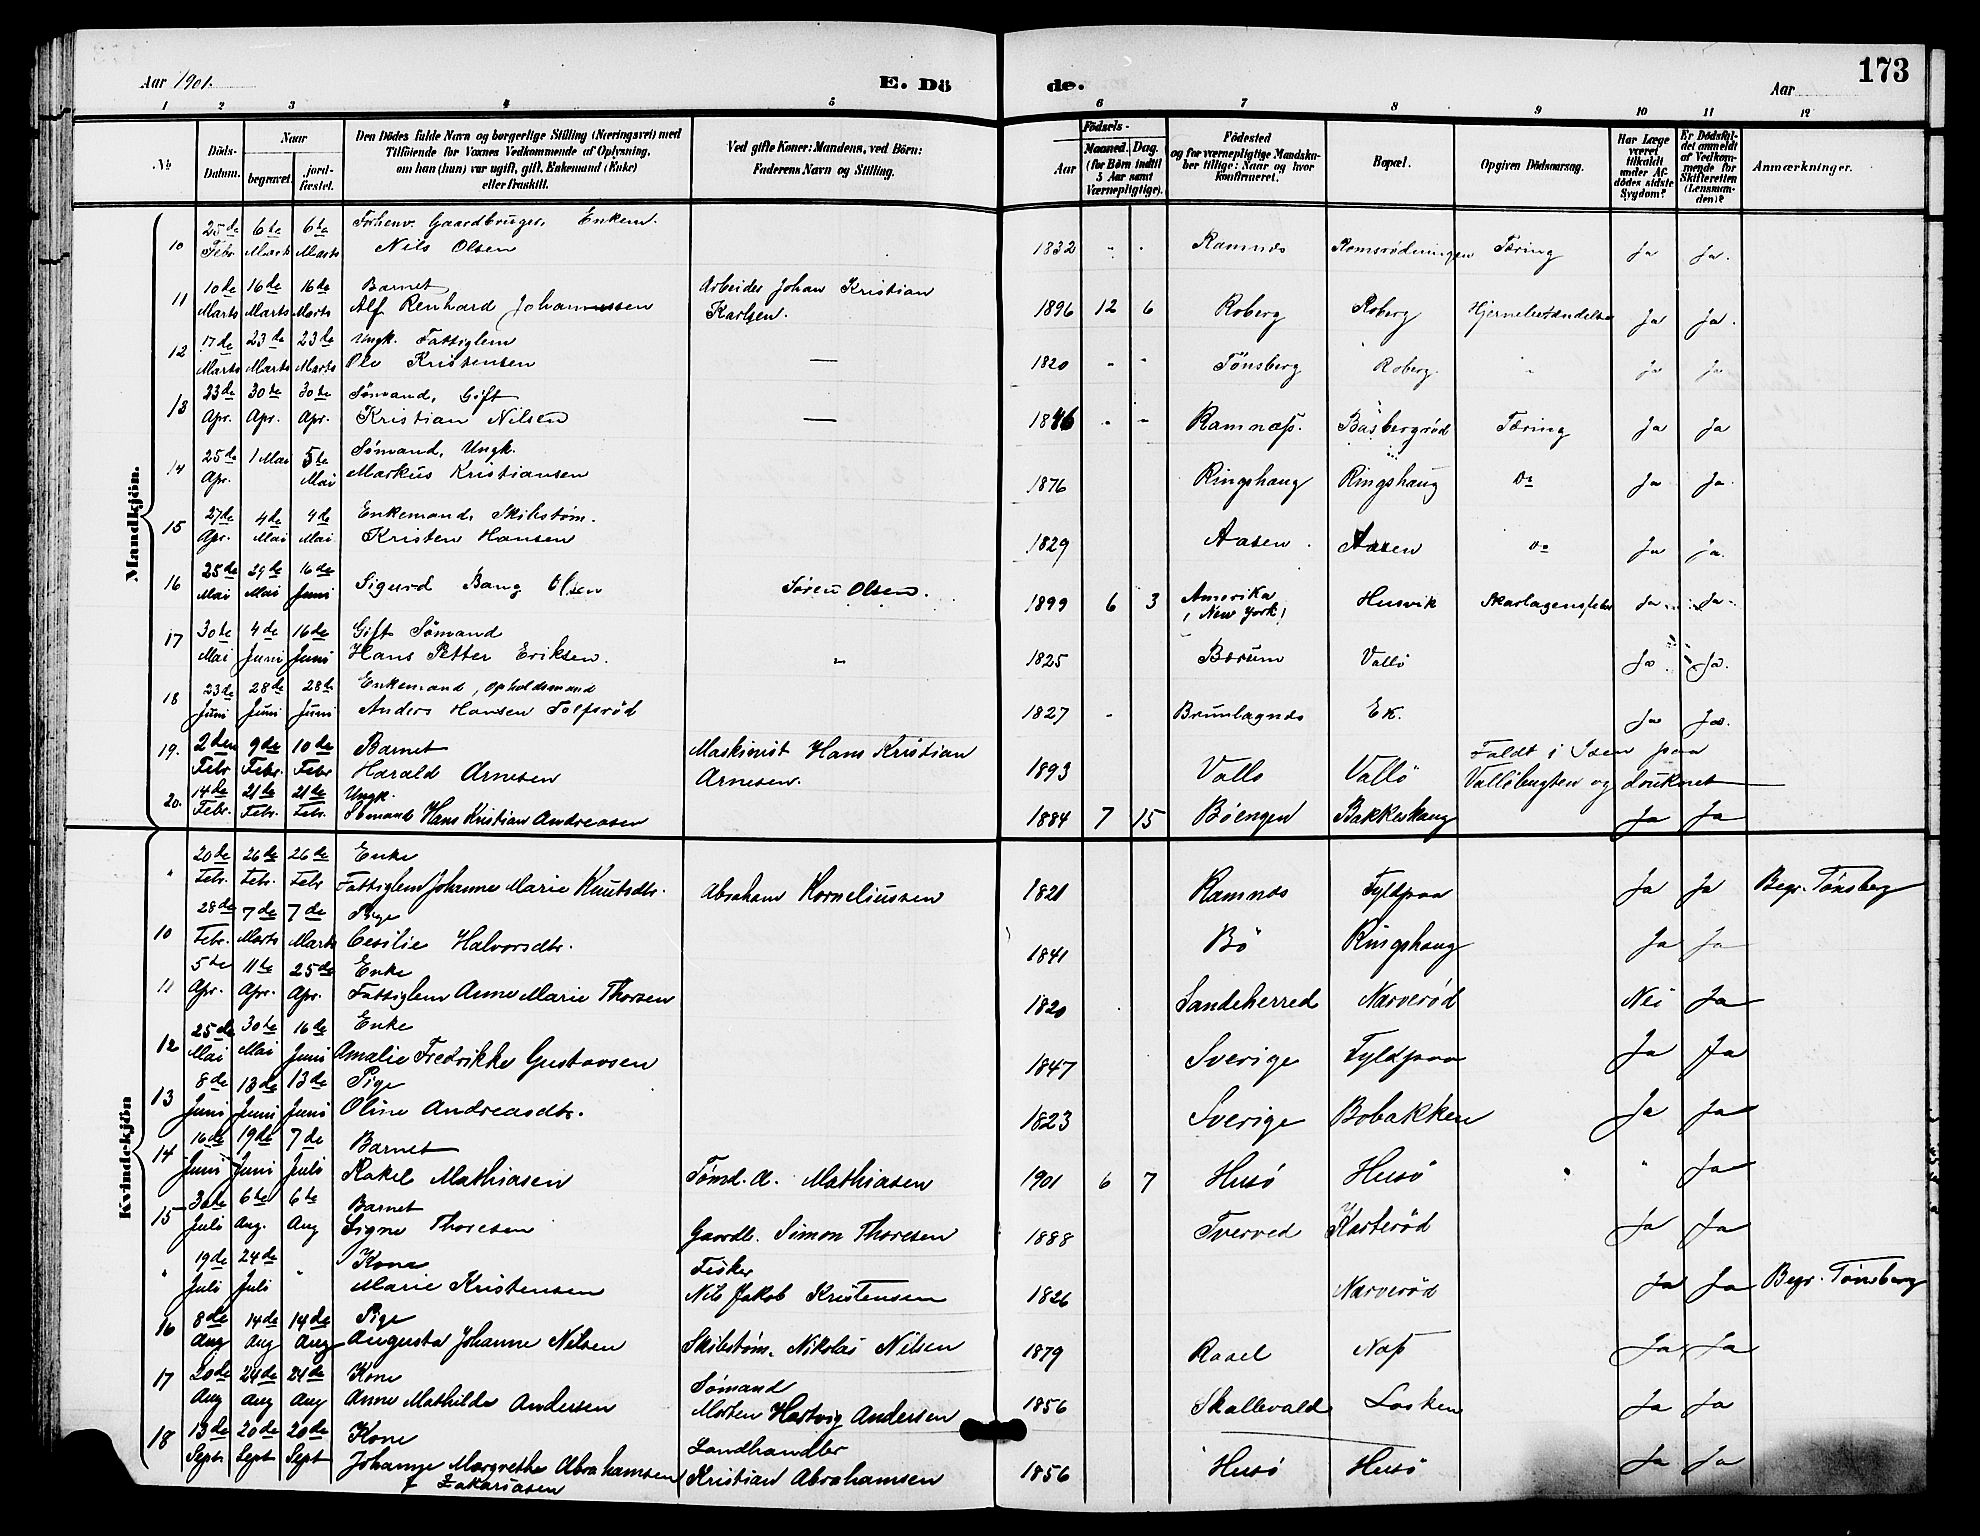 173
Aar 1901.
E. Dö
de.
Aar
1 2 3 4 5 6 7 8 9 10 11 12
No
Döds-Datum.
Naar
begravet.
jord-fæstet.
Den Dödes fulde Navn og borgerlige Stilling (Næringsvei) med
Tilföiende for Voxnes Vedkommende af Oplysning,
om han (hun) var ugift, gift, Enkemand (Enke)
eller fraskilt.
Ved gifte Koner: Mandens, ved Börn:
Faderens Navn og Stilling.
Födsels-
Aar
Maaned. Dag.
(for Börn indtil
5 Aar samt
Værnepligtige).
Födested
og for værnepligtige Mandska-
ber tillige: Naar og hvor
konfirmeret.
Bopæl.
Opgiven Dödsaarsag.
Har Læge
været
tilkaldt
under Af-
dödes sidste
Sygdom?
Er Dödsfal-
det anmeldt
af Vedkom-
mende for
Skifteretten
(Lensman-
den)?
Anmærkninger.
Mandkjön.
10 25de Febr. 6te Marts 6te Marts Forhenv. Gaardbruger, Enkem. Nils Olsen 1832 " " Ramnes Ramsrødningen Tæring Ja Ja.
11 10de Marts 16de Marts 16de Marts Barnet Alf Renhard Johannessen Arbeider Johan Kristian Karlsen. 1896 12 6 Roberg Roberg Hjernebetændelse Ja Ja.
12 17de Marts 23de Marts 23de Marts Ungk. Fattiglem Ole Kristensen — 1820 " " Tønsberg Roberg. " Ja Ja
13 23de Apr. 30te Apr. 30te Apr. Sømand, Gift Kristian Nilsen — 1846 " " Ramnæs. Basbergrød Tæring Ja Ja
14 25de Apr. 1 Mai 5te Mai Sømand, Ungk. Markus Kristiansen 1876 Ringshaug Ringshaug Do Ja Ja.
15 27de Apr. 4de Mai 4de Mai Enkemand, Skibstøm. Kristen Hansen 1829 Aasen. Aasen Do Ja Ja.
16 25de Mai 29de Mai 16de Juni Sigurd Bang Olsen Søren Olsen. 1899 6 3 Amerika (New York) Husvik Skarlagensfeber Ja. Ja.
17 30te Mai 4de Juni 16de Juni Gift Sømand Hans Petter Eriksen. " 1825 Bærum Vallø Ja. Ja.
18 23de Juni 28de Juni 28de Juni Enkemand, Opholdsmand Anders Hansen Tolfsrød 1827 " Brunlagnes Ek. Ja Ja.
19. 2den Febr. 9de Febr. 10de Febr Barnet Harald Arnesen Maskinist Hans Kristian Arnesen. 1893 Vallø Vallø Faldt i Isen paa Valløbugten og druknet
20. 14de Febr. 21de Febr. 21de Febr. Ungk. Sömand Hans Kristian Andreasen 1884 7 15 Böengen Bakkeshaug Ja Ja
Kvindekjön
" 20de Febr. 26de Febr. 26de Febr Enke Fattiglem Johanne Marie Knutsdtr. Abraham Korneliussen 1821 Ramnes Fyldpaa Ja Ja Begr. Tønsberg
10 28de Febr. 7de Marts 7de Marts Pige Cesilie Halvorsdtr. 1841 Bö Ringshaug Ja Ja
11 5te Apr. 11te Apr. 25de Apr. Enke Fattiglem Anne Marie Thorsen 1820 Sandeherred Narverød Nei Ja
12 25de Mai 30te Mai 16de Juni Enke Amalie Fredrikke Gustavsen 1847 Sverige Fyldpaa Ja Ja
13 8de Juni 13de Juni 13de Juni Pige Oline Andreasdtr. 1823 Sverige Bobakken Ja Ja
14 16de Juni 19de Juni 7de Juli Barnet Rakel Mathiasen Tømd. A. Mathiasen 1901 6 7 Husö Husö " " Ja
15 30te Juli 6te Aug. 6te Aug Barnet Signe Thoresen Gaardb. Simon Thoresen 1888 Tverved Karterød Ja Ja
" 19de Juli 24de Juli " Kone Marie Kristensen Fisker Nils Jakob Kristensen 1826 Narverød Ja Ja Begr. Tønsberg
16 8de Aug 14de Aug 14de Aug Pige Augusta Johanne Nilsen Skibstøm. Nikolai Nilsen 1879 Rael Næs Ja Ja
17 20de Aug 24de Aug 24de Aug Kone Anne Mathilde Andersen Sømand Morten Hartvig Andersen 1856 Skallevald Løken Ja Ja
18 13de Sept. 20de Sept 20de Sept Kone Johanne Margrethe Abrahamsen f Zakariasen Landhandler Kristian Abrahamsen 1856 Husö Husö Ja Ja